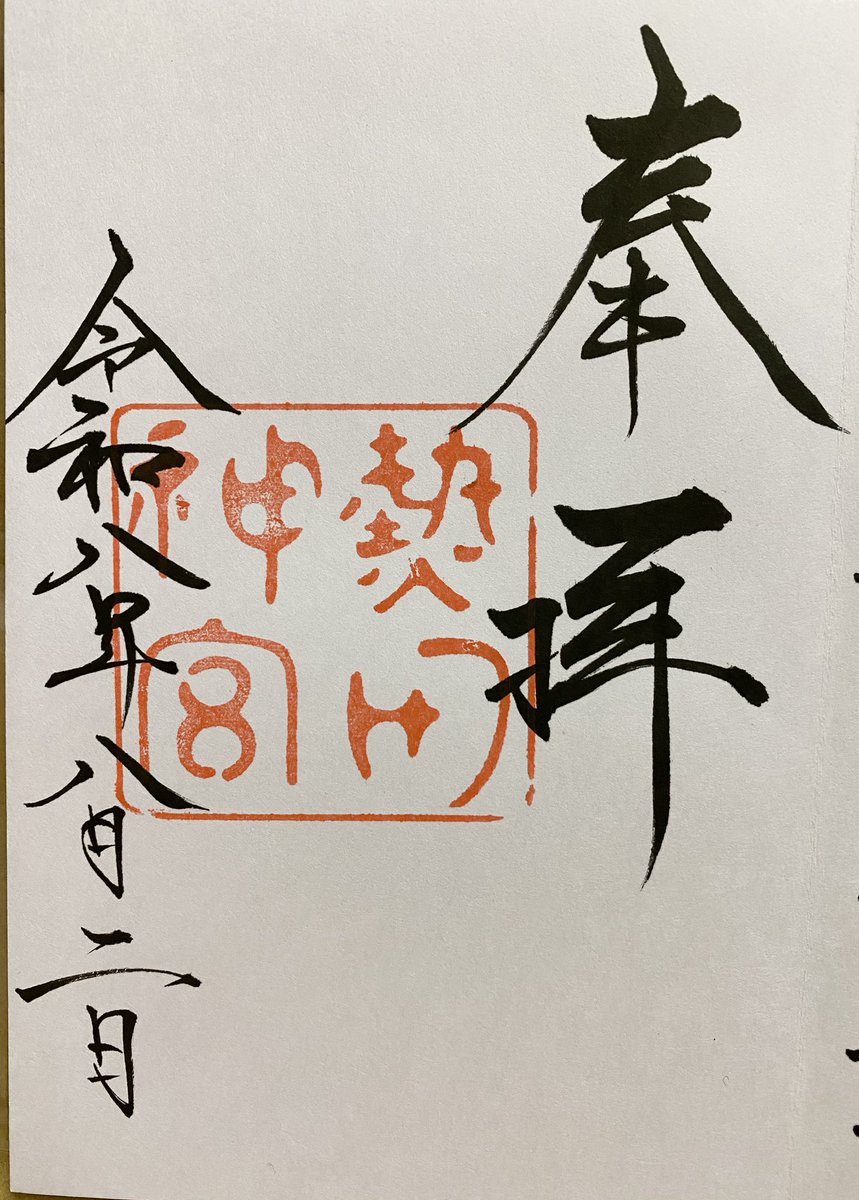 奉拝
熱田神宮
令和八年八月二日